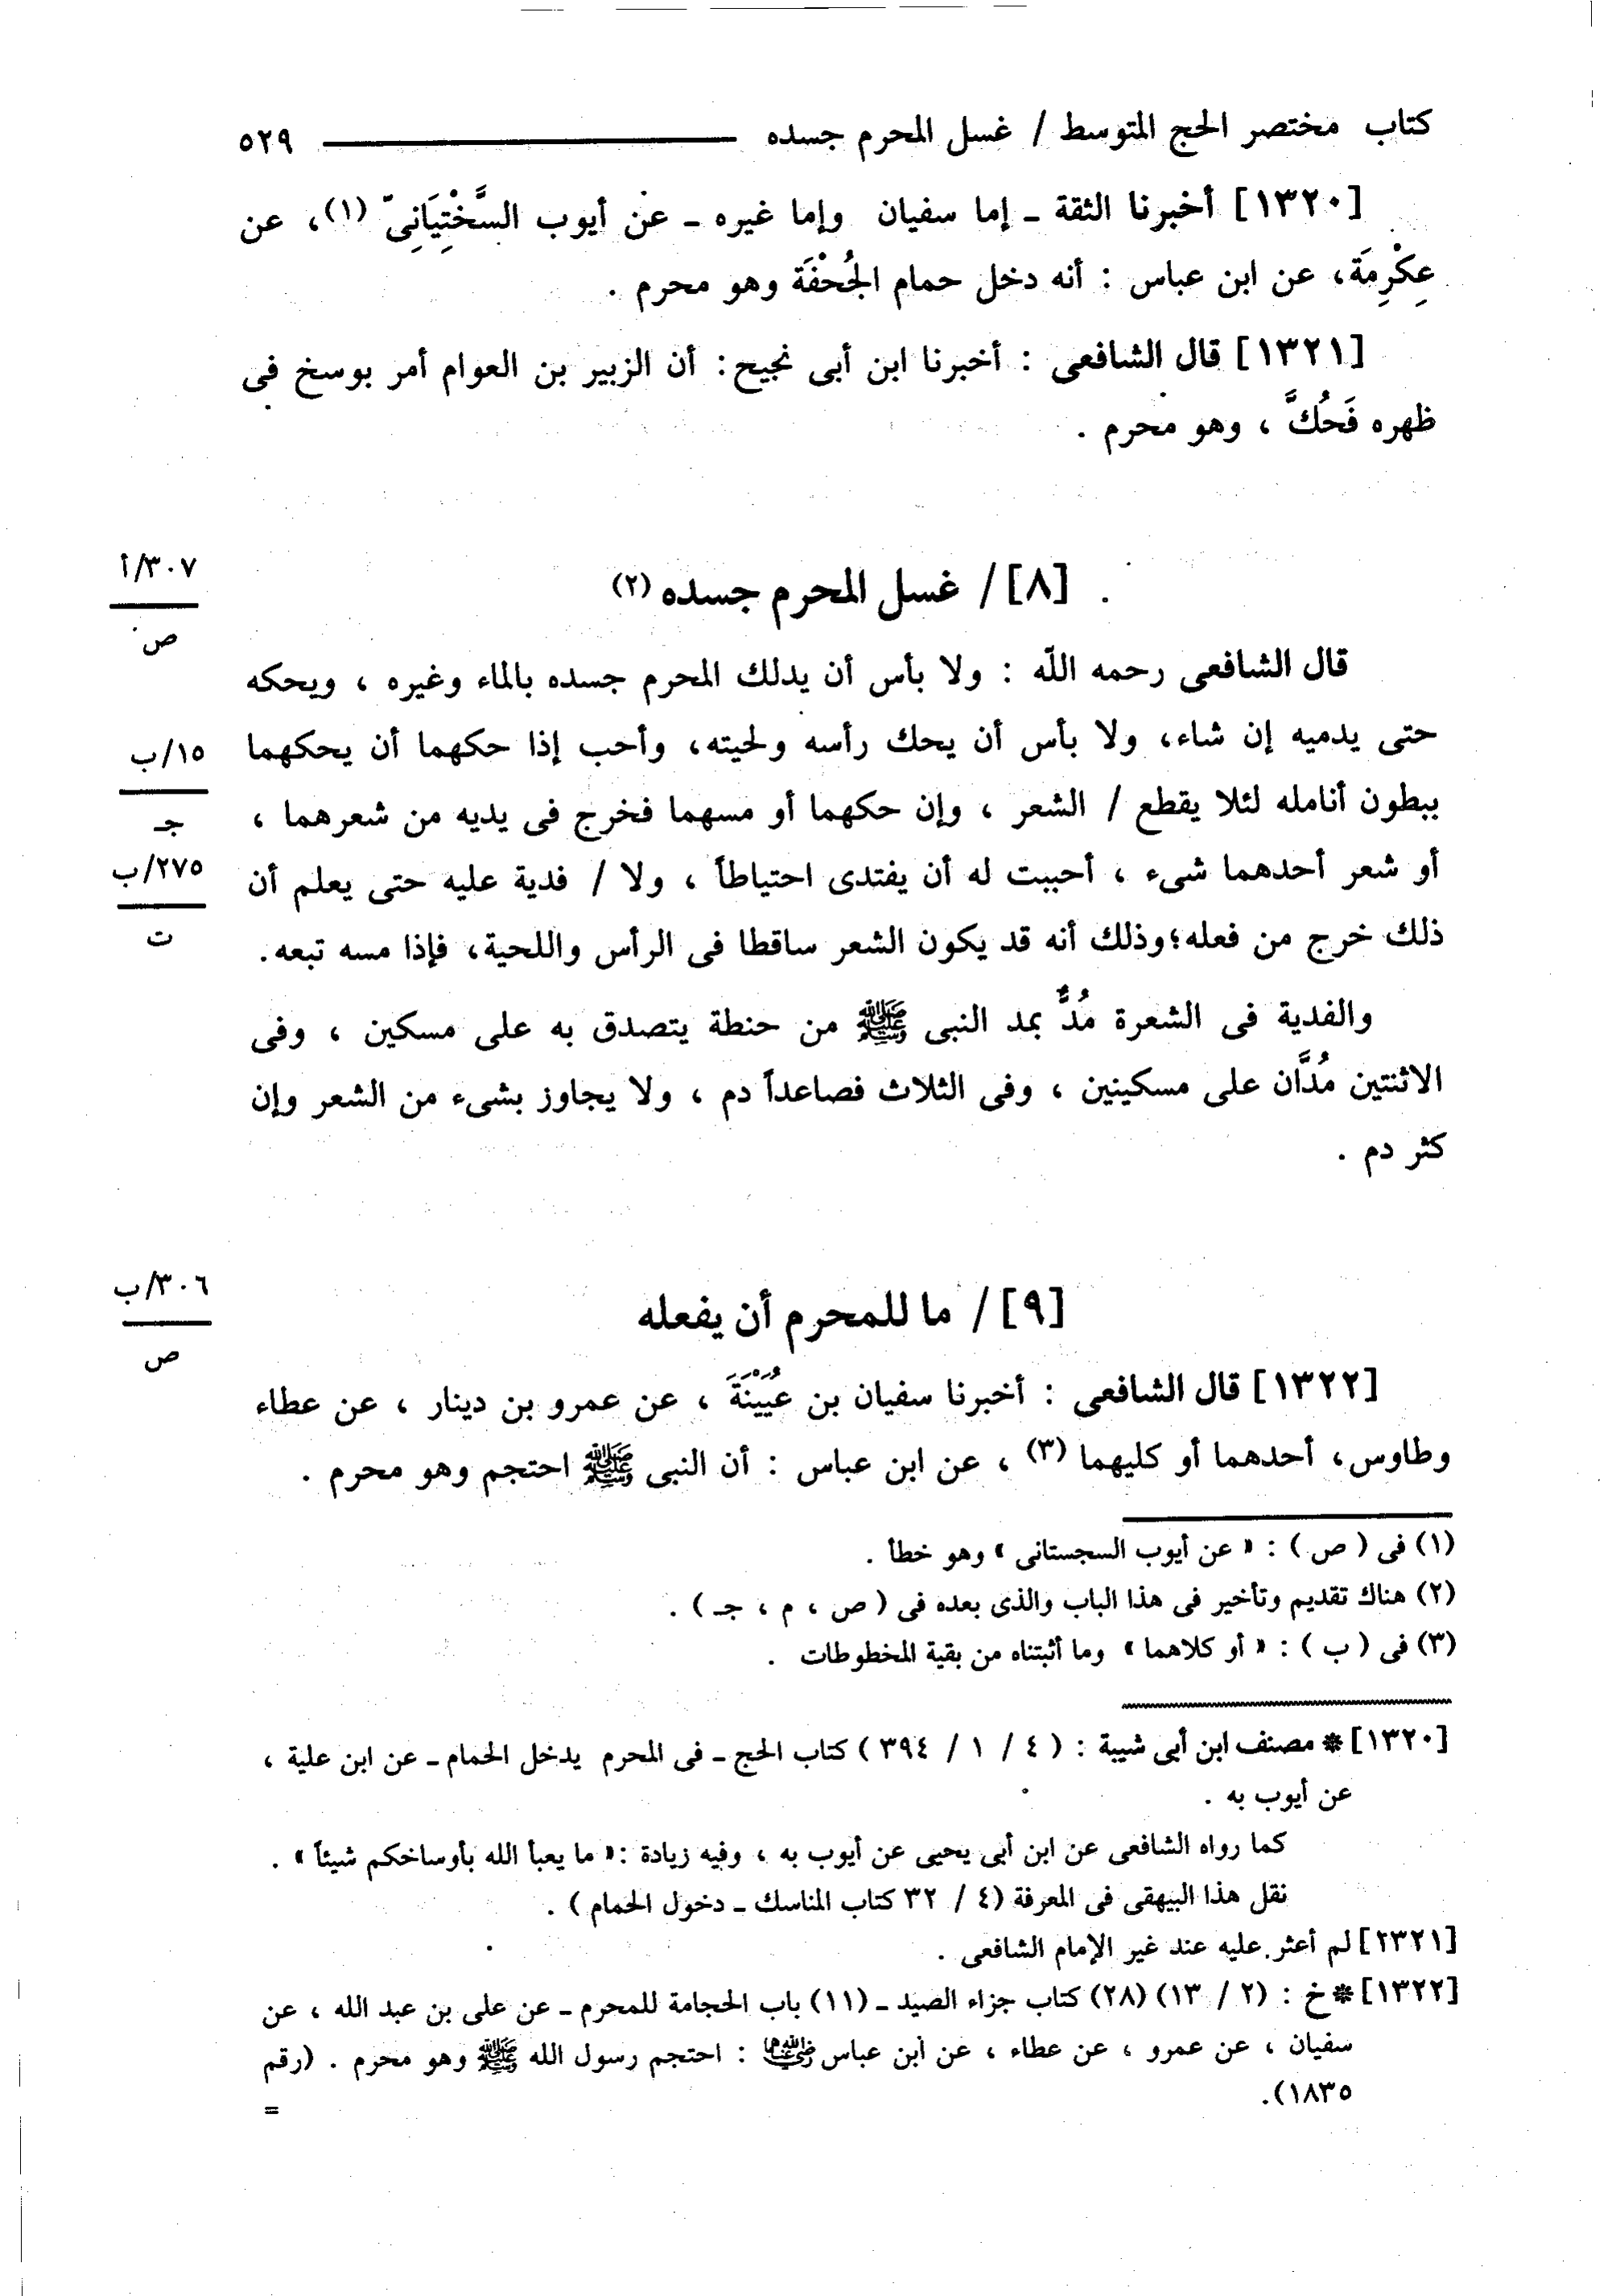 كتاب مختصر الحج المتوسط / غسل المحرم جسده ٥٢٩
[١٣٢٠] أخبرنا الثقة ـ إما سفيان وإما غيره ـ عن أيوب السَّخْتِيَانِىّ (١)، عن
عِكْرِمَة، عن ابن عباس : أنه دخل حمام الجُحْفَة وهو محرم .
[١٣٢١] قال الشافعى : أخبرنا ابن أبى نجيح: أن الزبير بن العوام أمر بوسخ فى
ظهره فَحُكَّ ، وهو محرم .
٣٠٧/أ
ص
[٨]/ غسل المحرم جسده (٢)
قال الشافعى رحمه اللّه : ولا بأس أن يدلك المحرم جسده بالماء وغيره ، ويحكه
حتى يدميه إن شاء، ولا بأس أن يحك رأسه ولحيته، وأحب إذا حكهما أن يحكهما
١٥/ب
ببطون أنامله لئلا يقطع / الشعر ، وإن حكهما أو مسهما فخرج فى يديه من شعرهما ،
جـ
أو شعر أحدهما شىء ، أحببت له أن يفتدى احتياطاً ، ولا / فدية عليه حتى يعلم أن
٢٧٥/ب
ت
ذلك خرج من فعله؛وذلك أنه قد يكون الشعر ساقطا فى الرأس واللحية، فإذا مسه تبعه.
والفدية فى الشعرة مُدٌّ بمد النبى ﷺ من حنطة يتصدق به على مسكين ، وفى
الاثنتين مُدَّان على مسكينين ، وفى الثلاث فصاعداً دم ، ولا يجاوز بشىء من الشعر وإن
كثر دم .
٣٠٦/ب
ص
[٩]/ ما للمحرم أن يفعله
[١٣٢٢] قال الشافعى : أخبرنا سفيان بن عُيَيْنَةَ ، عن عمرو بن دينار ، عن عطاء
وطاوس، أحدهما أو كليهما (٣) ، عن ابن عباس : أن النبى ﷺ احتجم وهو محرم .
(١) فى ( ص ) : « عن أيوب السجستانى » وهو خطأ .
(٢) هناك تقديم وتأخير فى هذا الباب والذى بعده فى ( ص ، م ، جـ ) .
(٣) فى ( ب ) : « أو كلاهما » وما أثبتناه من بقية المخطوطات .
[١٣٢٠] * مصنف ابن أبى شيبة : ( ٤ / ١ / ٣٩٤ ) كتاب الحج ـ فى المحرم يدخل الحمام ـ عن ابن علية ،
عن أيوب به .
كما رواه الشافعى عن ابن أبى يحيى عن أيوب به ، وفيه زيادة :« ما يعبأ الله بأوساخكم شيئاً » .
نقل هذا البيهقى فى المعرفة (٤ / ٣٢ كتاب المناسك ـ دخول الحمام ) .
[٢٣٢١] لم أعثر عليه عند غير الإمام الشافعى .
[١٣٢٢] * خ : (٢ / ١٣) (٢٨) كتاب جزاء الصيد ـ (١١) باب الحجامة للمحرم ـ عن على بن عبد الله ، عن
سفيان ، عن عمرو ، عن عطاء ، عن ابن عباس رضي الله عنهما : احتجم رسول الله ﷺ وهو محرم . (رقم
١٨٣٥).
=